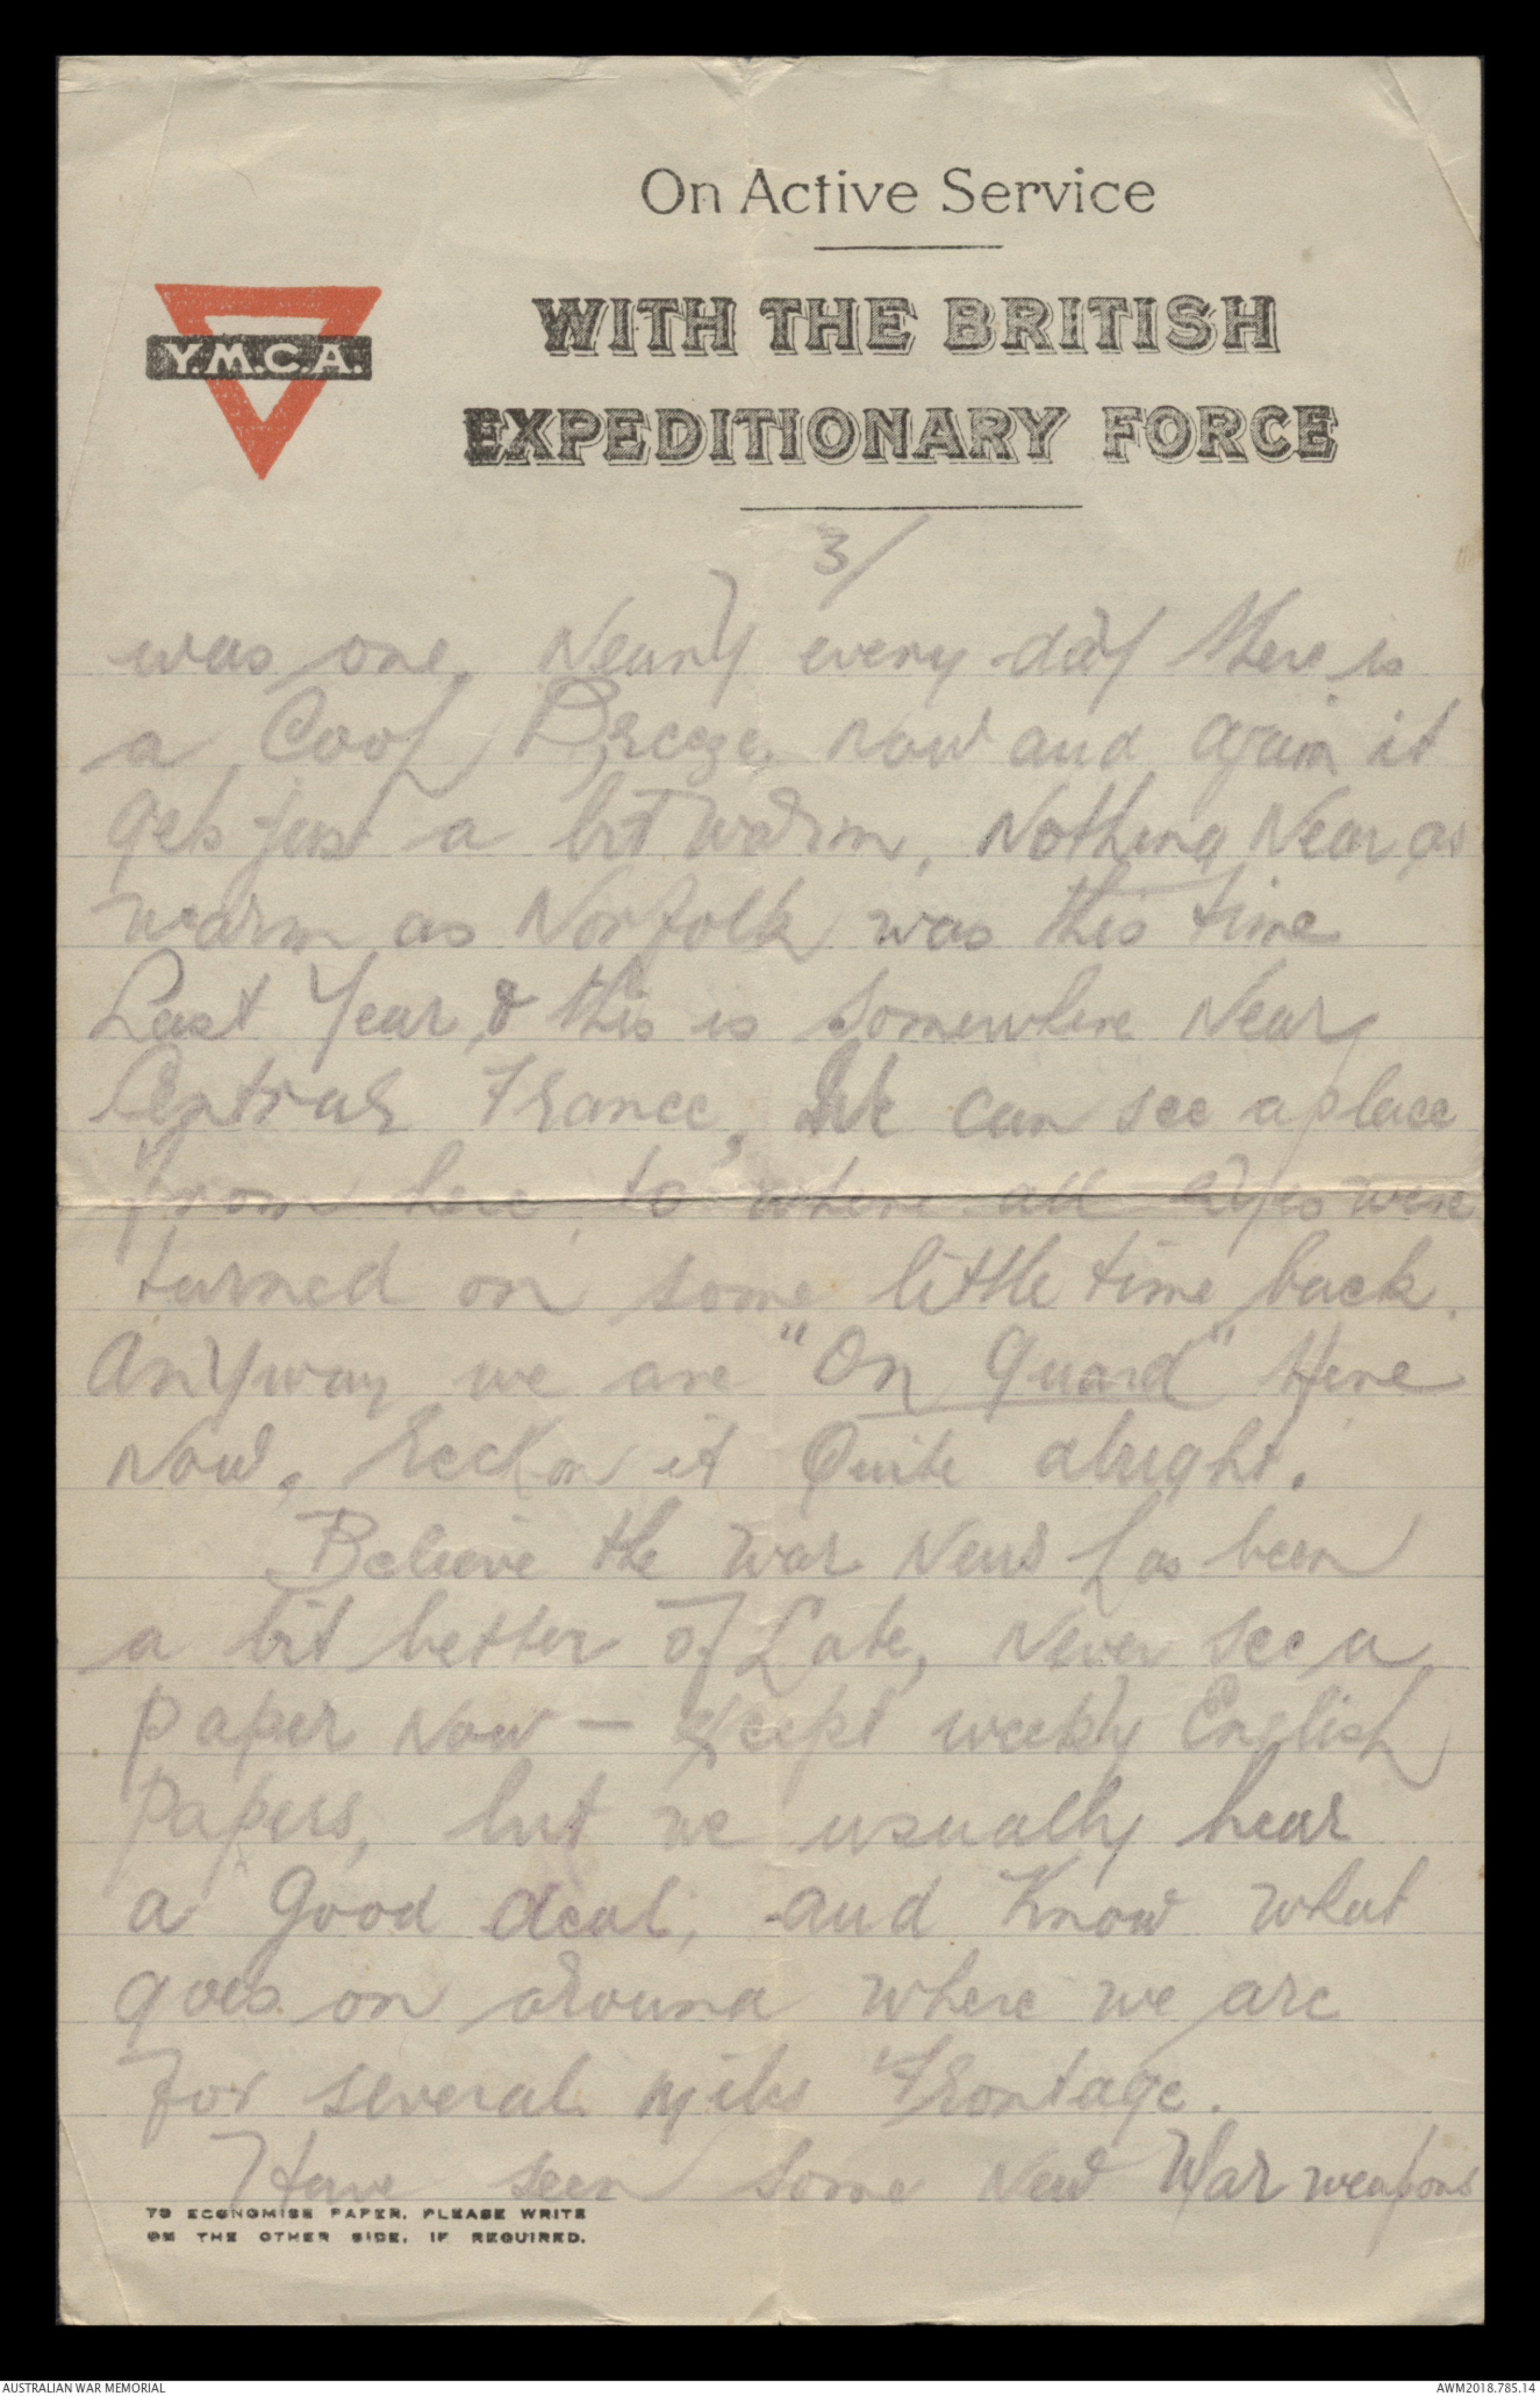 On Active Service
WITH THE BRITISH
Y.M.C.A.
EXPEDITIONARY FORCE
3/
was one, Nearly every day there is
a Cool Breeze, now and again it
gets just a bit warm, Nothing Near as
warm as Norfolk was this time
Last Year, & this is somewhere Near
Central France, We can see a place
from here, to where all eyes were
turned on some little time back.
Anyway we are "On Guard" Here
Now, Reckon it Quite alright.
Believe the War News has been
a bit better of Late, Never see a
paper Now — except weekly English
Papers, but we usually hear
a Good deal, and Know what
goes on around where we are
for several miles Frontage.
Have seen some New War weapons
TO ECONOMISE PAPER, PLEASE WRITE
ON THE OTHER SIDE, IF REQUIRED.
AUSTRALIAN WAR MEMORIAL
AWM2018.785.14